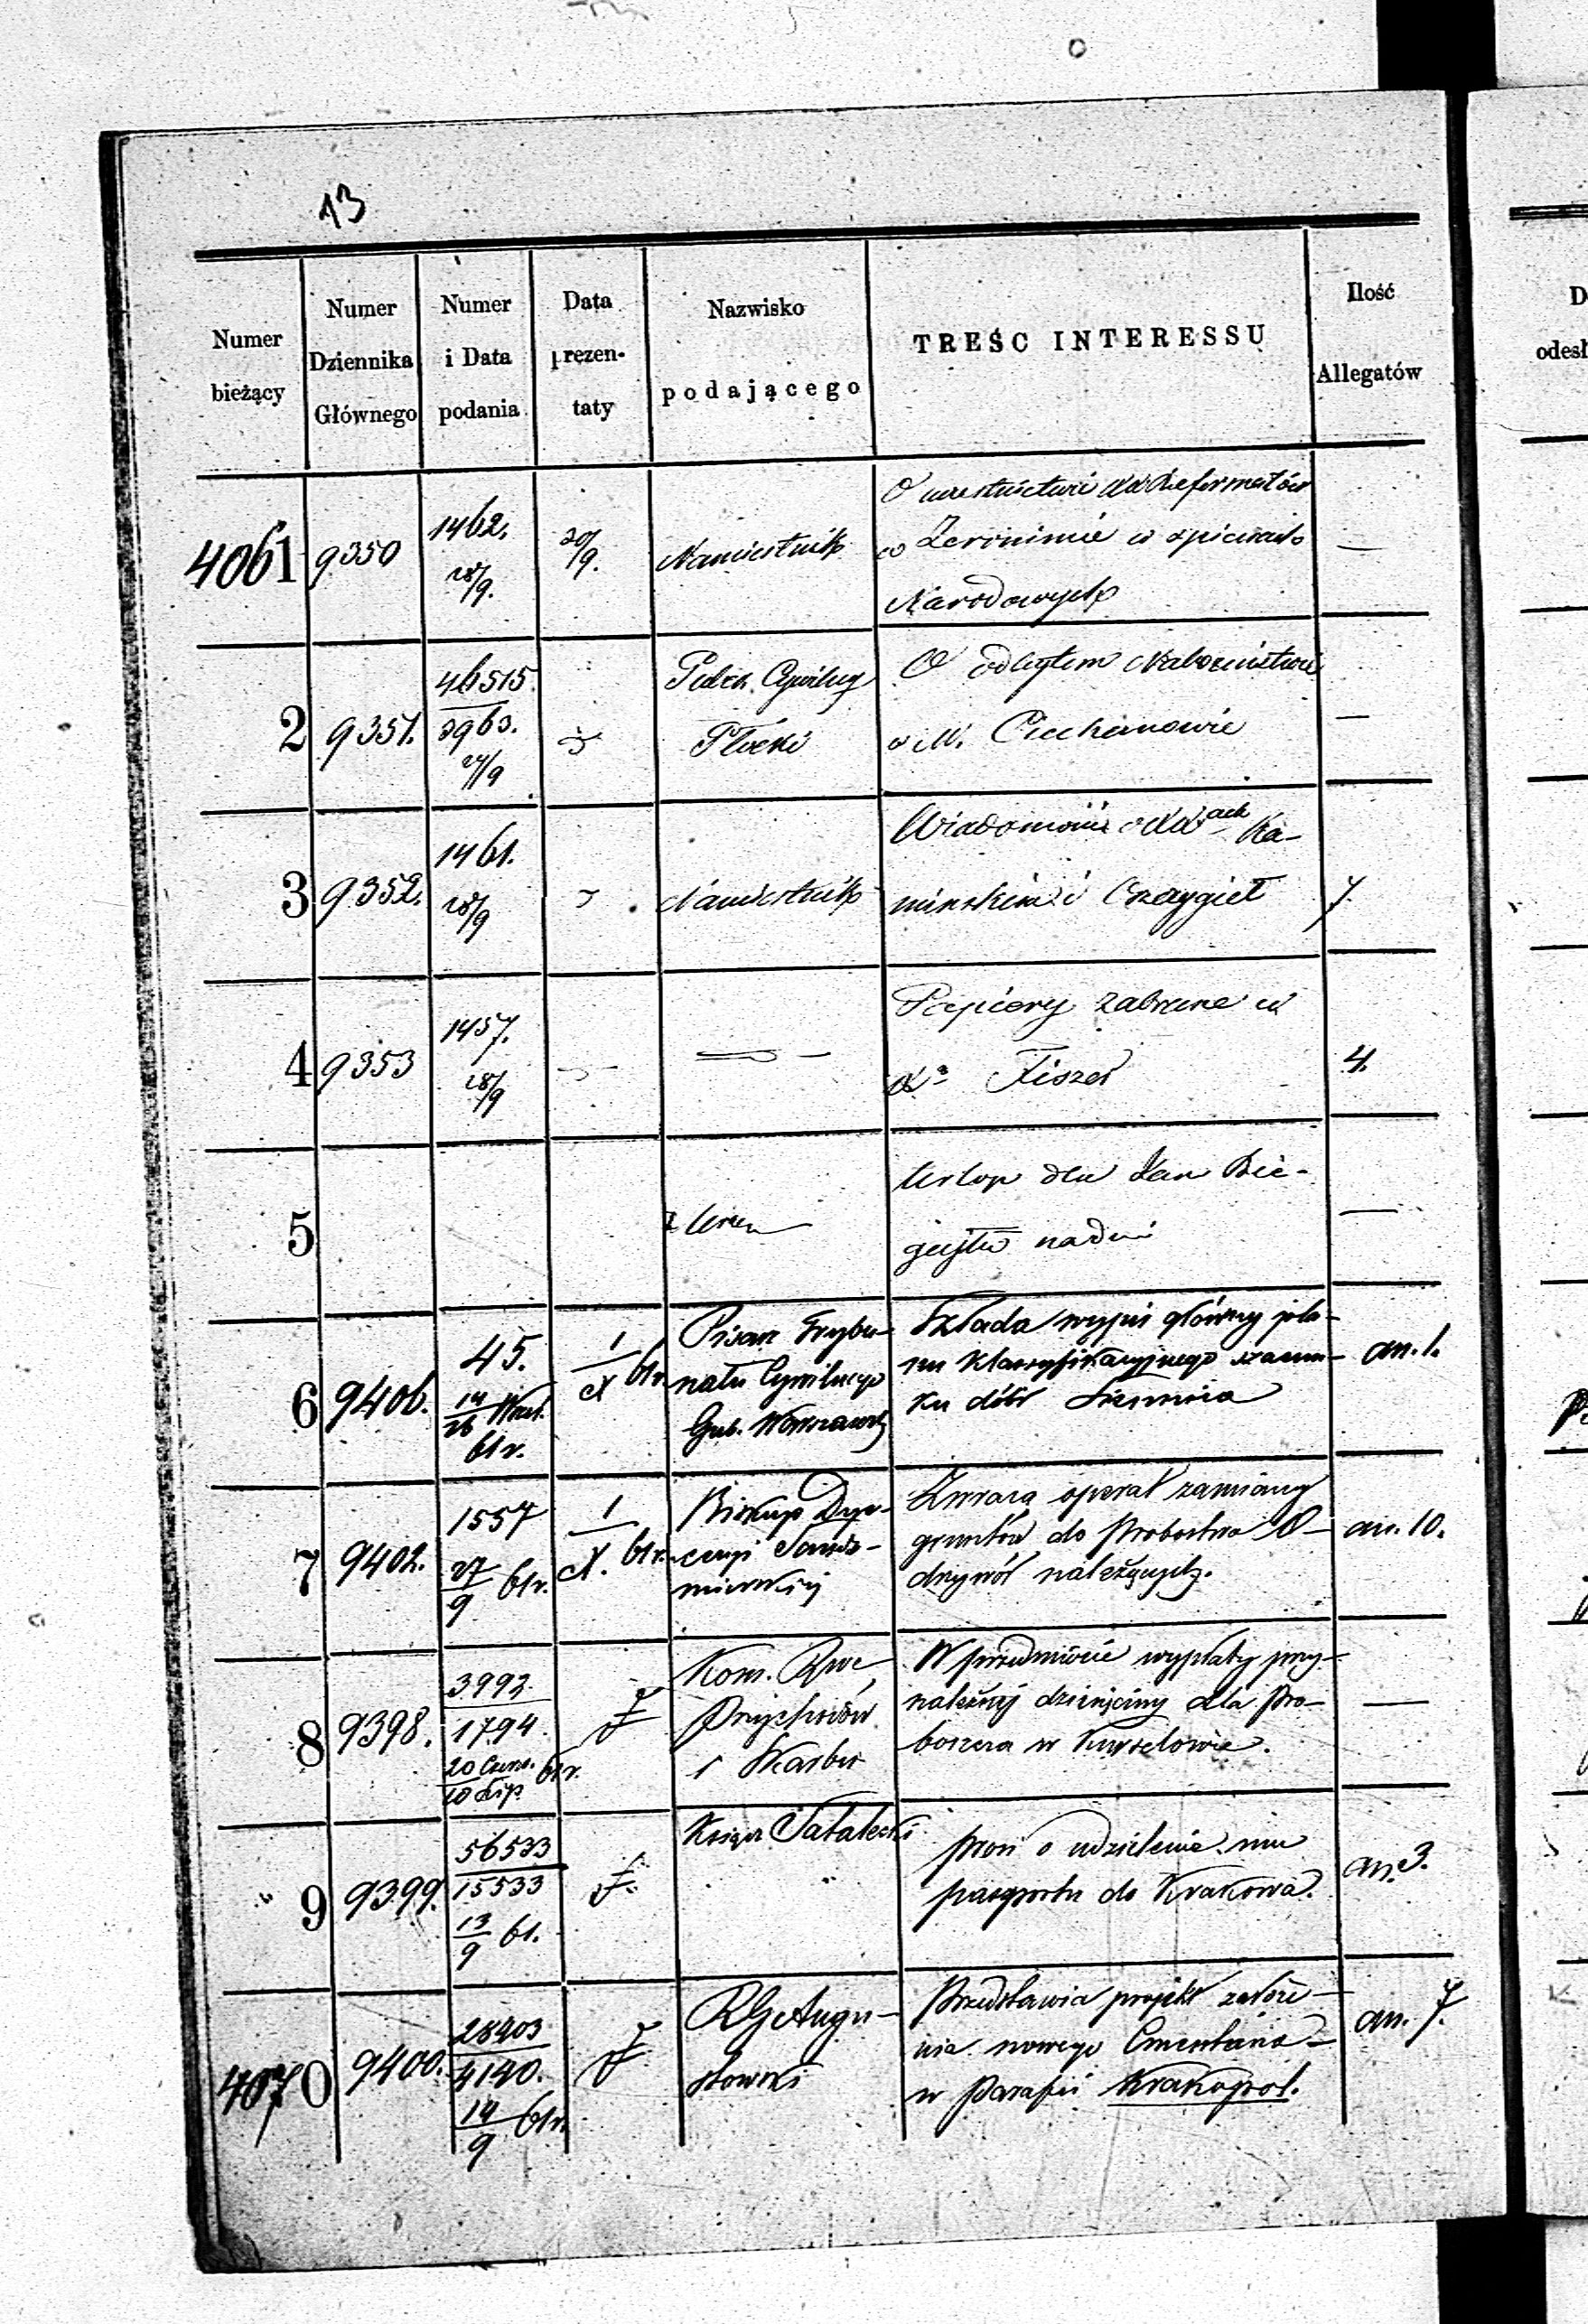 13
Numer bieżący
Numer Dziennika Głównego
Numer i Data podania
Data prezentaty
Nazwisko podającego
TREŚC INTERESSU
Ilość Allegatów
4061
9350
1462.
28/9.
30/9.
Namiestnik
O uczestnictwie Reformatów
w i w śpiewach
Narodowych
—
2
9351.
46515.
3963.
27/9
Cywilny
Płocki
O odbytem Nabożeństwie
w M. Ciechanowie
—
3
9352.
1461.
28/9
Namiestnik
Wiadomość o XXach Ka-
mińskim i Czaygiet
7.
4
9353
1457.
28/9
Papiery zabrane u
Xa Fiszer
4.
5
Urlop dla Xa
—
6
9406.
45.
14/26 Wrz.
61 r.
1/X 61 r.
Pisarz Trybu-
nału Cywilnego
Gub. Warszawsk
Składa wypis główny pla-
nu klassyfikacyjnego szacun-
ku dóbr Siennica
an. 1.
7
9402.
1557
27/9 61 r.
1/X. 61 r.
Biskup Dye-
cezyi Sando-
mierskiej
Zwraca operat zamiany
gruntów do Probostwa O-
drzywół należących.
an. 10.
8
9398.
3992
1794.
20 Czerw./10 Lip. 61 r.
Kom. Rzo
Przychodów
i Skarbu
W przedmiocie wypłaty przy-
należnej dziesięciny dla Pro-
boszcza w Kurzelowie.
—
9
9399.
56533
15533
13/9 61.
Ksiądz Sałatecki
prosi o udzielenie mu
paszportu do Krakowa.
an. 3.
4070
9400.
28403
4140.
14/9 61 r.
RG Augu-
stowski
Przedstawia projekt założe-
nia nowego Cmentarza
w Parafii Krakopol.
an. 7.